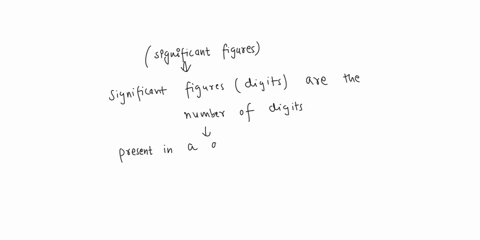 (significant figures)
significant figures (digits) are the
number of digits
present in a